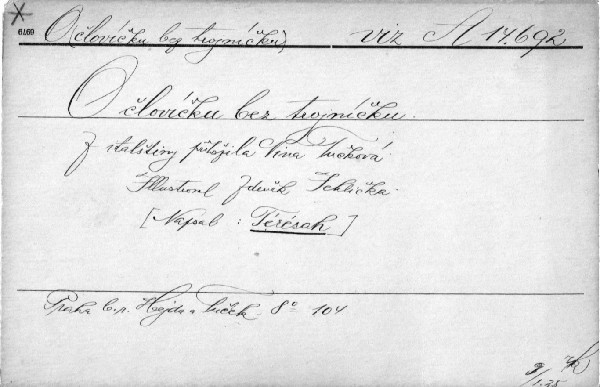 6919
O človíčku bez trojníčku) viz A 17.692
O človíčku bez trojníčku.
Z italštiny přeložila Nina Tučková
Illustroval Zdeněk Schlička
[Napsal: Térésah]
Praha b.r. Hejda a Tuček 8° 104